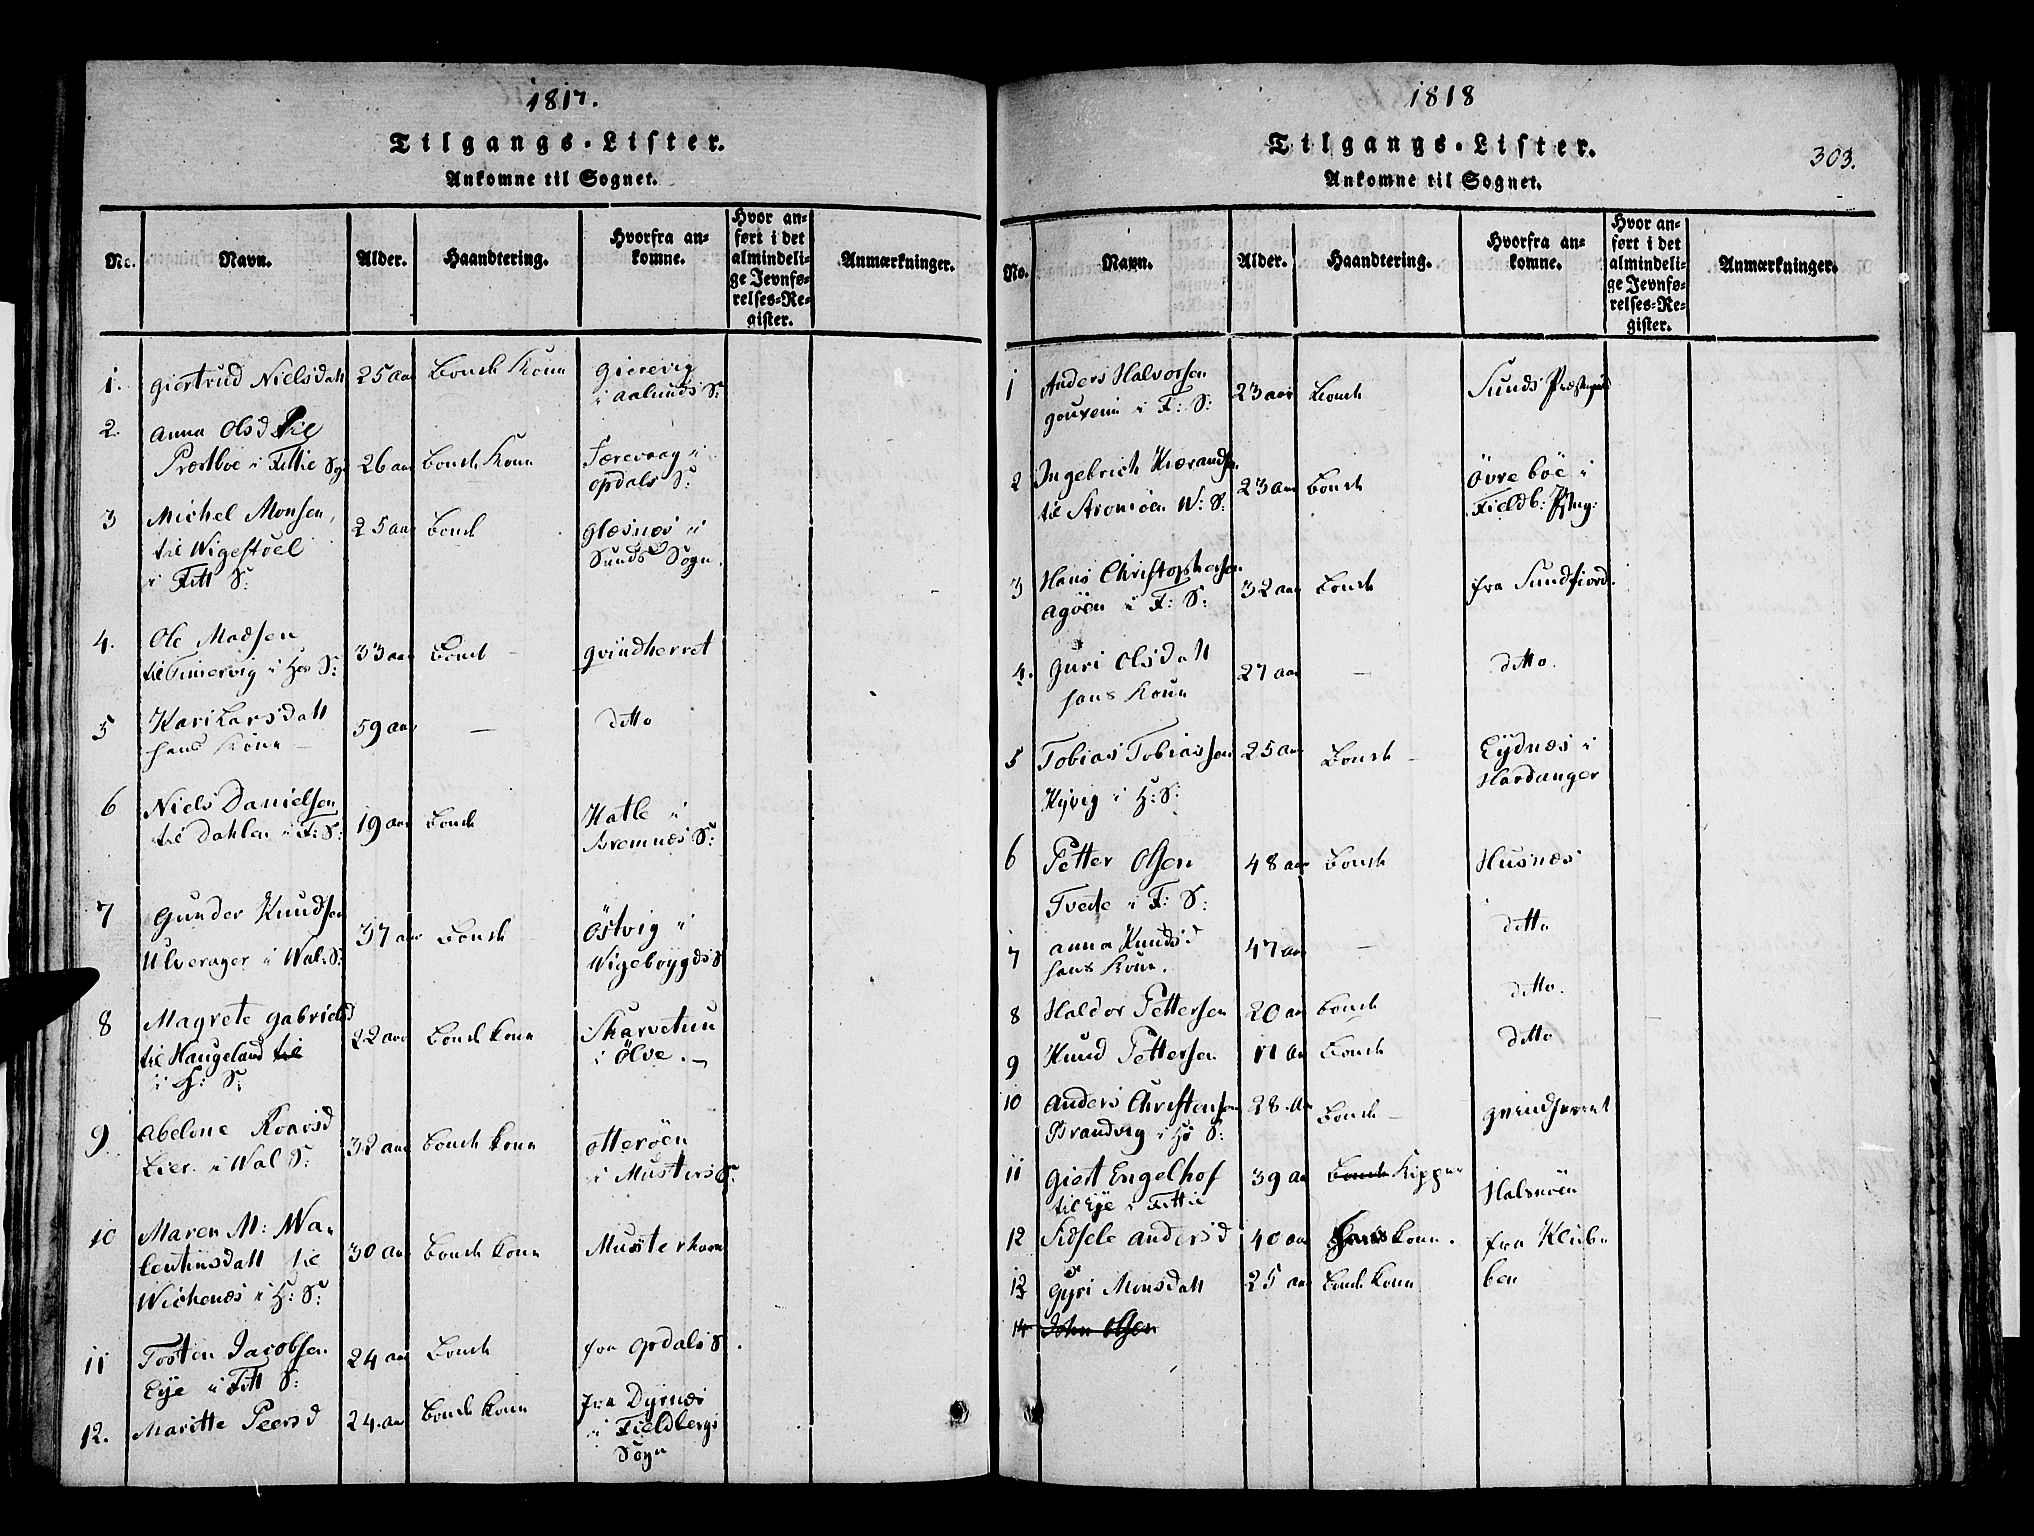 1817.
Tilgangs-Lister.
Ankomne til Sognet.
No. Navn. Alder. Haandtering. Hvorfra an-
komne. Hvor an-
ført i det
almindeli-
ge Jevnfø-
relses-Re-
gister. Anmærkninger.
1. Giertrud Nielsdatt 25 aar Bonde Kone Gierevig
i aalunds S:
2. Anna Olsd til
Præstboe i Fittie Sog 26 aar Bonde Kone Færevaag i
opdals S:
3 Michel Monsen,
til Wigestöel
i Fitt S: 25 aar Bonde Glæsnæs i
Sunds Sogn.
4. Ole Madsen
til Timervig i Hos S: 33 aar Bonde Qvindherret
5 Kari Larsdatt
hans Kone 59 aar — ditto
6 Niels Danielsen
til Dahlen i F: S: 19 aar Bonde Katle i
Bremnæs S:
7 Gunder Knudsen
Ulverager i Wal: S: 37 aar Bonde Östvig i
Wigebøygds S
8 Magrete Gabrielsd
til Haugeland til
i H: S: 22 aar Bonde kone Skarvetun
i Ölve.
9. Abelone Roaldsd
Lier i Wal S: 32 aar Bonde kone otteröen
i Musters S:
10 Maren M: Wa-
lentinsdatt til
Wichenæs i H: S: 30 aar Bonde kone Musterhavn
11 Tosten Jacobsen
Eye i Fitt S: 24 aar Bonde fra Opdals S.
12. Maritte Peersd 24. aar Bonde kone fra Dyrnæs
i Fieldbergs
Sogn
1818
303.
Tilgangs-Lister.
Ankomne til Sognet.
No. Navn. Alder. Haandtering. Hvorfra an-
komne. Hvor an-
ført i det
almindeli-
ge Jevnfø-
relses-Re-
gister. Anmærkninger.
1 Anders Halvorsen
i F: S: 23 aar Bonde Sunds Præstegield
2 Ingebrich
til Strömöen W: S: 23 aar Bonde Övre böe i
Fieldb: Pstg:
3 Hans Christophersen
Agöen i F: S: 32 aar Bonde fra Sundfiord.
4. Guri Olsdatt
hans Kone 27 aar — ditto.
5 Tobias Tobiassen
Kyvig i H: S: 25 aar Bonde Eydnæs i
Hardanger
6 Petter Olsen
Tvedte i F: S: 48 aar Bonde Husnæs
7 Anna Knudsd
hans Kone. 47 aar — ditto
8 Haldor Pettersen 20 aar Bonde ditto.
9 Knud Pettersen 11 aar Bonde ditto
10 Anders Christensen
Brandvig i Ho S: 28 aar Bonde Qvindherret
11 Giert Engelhof
til Eye i Fittie 39 aar Bonde Kipper Halsnöen
12 Sidsele Andersd 40 aar hans kone. fra Klub-
ben
13 Gyri Monsdatt 25 aar Bonde kone
14 John Olsen